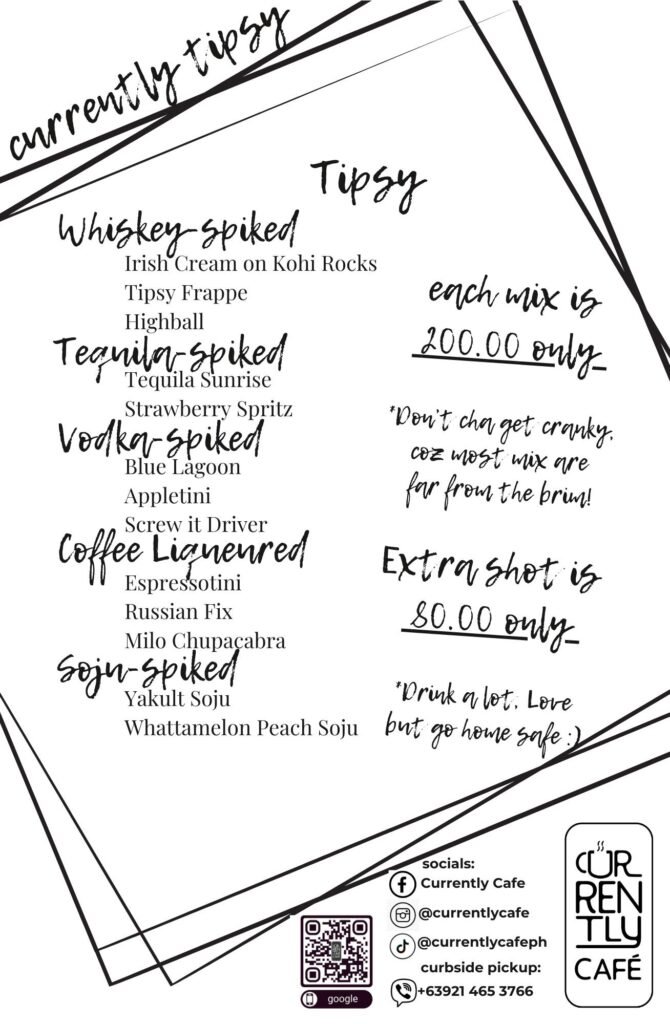 currently tipsy
Tipsy
Whiskey-spiked
Irish Cream on Kohi Rocks
Tipsy Frappe
Highball
Tequila-spiked
Tequila Sunrise
Strawberry Spritz
Vodka-spiked
Blue Lagoon
Appletini
Screw it Driver
Coffee Liquenred
Espressotini
Russian Fix
Milo Chupacabra
Soju-spiked
Yakult Soju
Whattamelon Peach Soju
each mix is
200.00 only
*Don't cha get cranky,
coz most mix are
far from the brim!
Extra shot is
80.00 only
*Drink a lot, Love
but go home safe :)
socials:
Currently Cafe
@currentlycafe
@currentlycafeph
curbside pickup:
+63921 465 3766
google
CUR
REN
TLY
CAFÉ